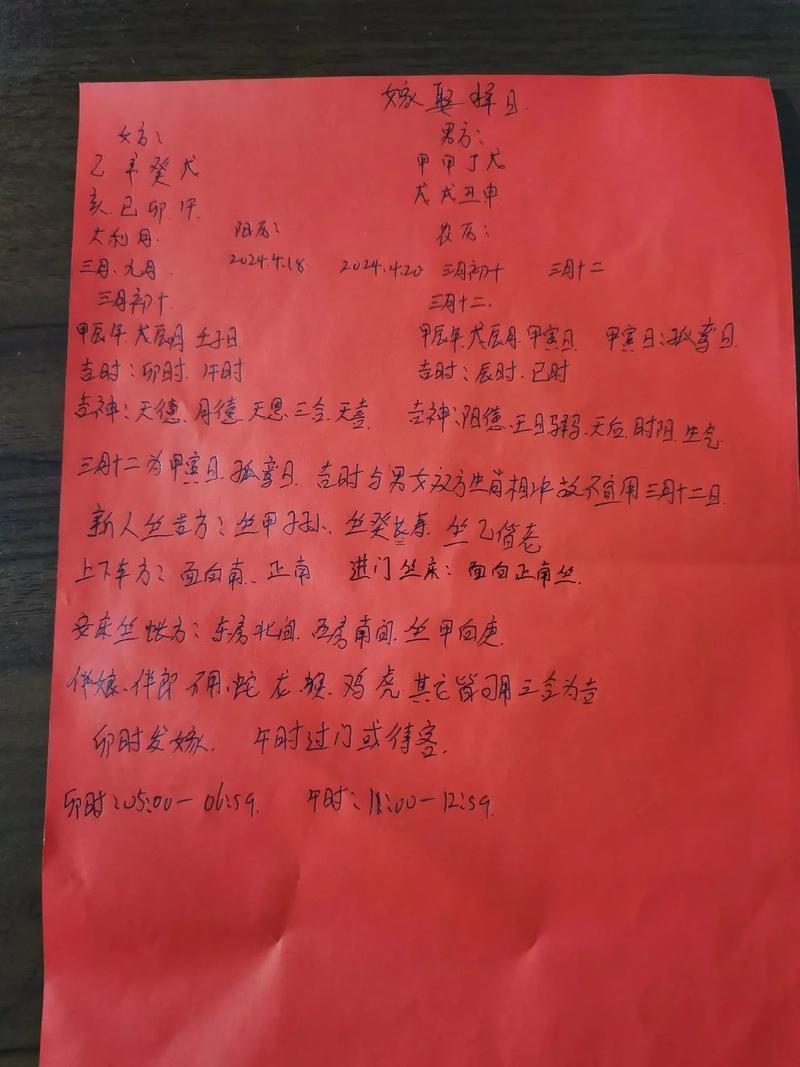 嫁娶择日
女方: 男方:
乙辛癸戊 甲甲丁戊
亥巳卯午 戌戌丑申
大利月 阳历: 农历:
三月、九月. 2024.4.18. 2024.4.20 三月初十 三月十二
三月初十 三月十二.
甲辰年.戊辰月 壬子日 甲辰年.戊辰月.甲寅日. 甲寅日:孤鸾日.
吉时:卯时.午时 吉时:辰时.巳时
吉神:天德、月德、天恩.三合.天喜. 吉神:阳德.王日.驿马.天后.时阳.生气
三月十二为甲寅日.孤鸾日.吉时与男女双方生肖相冲故不宜用三月十二日.
新人坐吉方:坐甲子孙、坐癸长寿.坐乙皆老
上下车方:面向南、正南 进门坐床:面向正南坐.
安床坐帐方:东房北间.西房南间.坐甲向庚
伴娘、伴郎不用:蛇龙.猴.鸡虎.其它皆可用三合为吉
卯时发嫁. 午时过门或待客.
卯时:05:00-06:59. 午时:11:00-12:59.